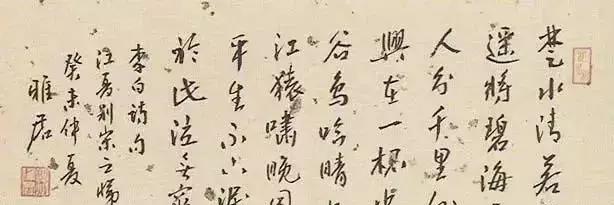 楚水清若
遥將碧海
人分千里
興在一杯
谷鳥吟晴
江猿嘯晚
平生不下淚
於此泣無窮
李白詩句
江夏別宋之悌
癸未仲夏
雅居